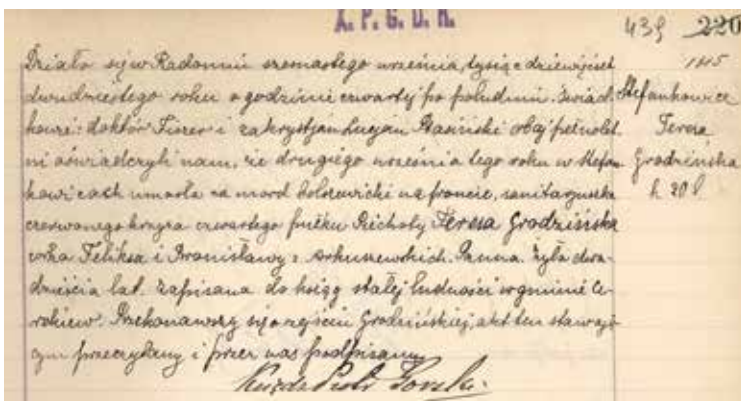 X. P. G. D. R.
439 220
1115
Działo się w Radomiu szesnastego września, tysiąc dziewięćset
dwudziestego roku o godzinie czwartej po południu. Świad-
kowie: doktór i zakrystjan Lucjan Stasiński obaj pełnolet-
ni oświadczyli nam, że drugiego września tego roku w Stefan-
kowicach umarła na mord bolszewicki na froncie, sanitarjuszka
czerwonego krzyża czwartego pułku Piechoty Teresa Grodzińska
córka Feliksa i Bronisławy z Arkuszewskich. Panna. Żyła dwa-
dzieścia lat. Zapisana do ksiąg stałej ludności w gminie Ce-
rekiew. Przekonawszy się o zejściu Grodzińskiej, akt ten stawają-
cym przeczytany i przez nas podpisany
Ksiądz Piotr Górski.
Stefankowice
Teresa
Grodzińska
l. 20